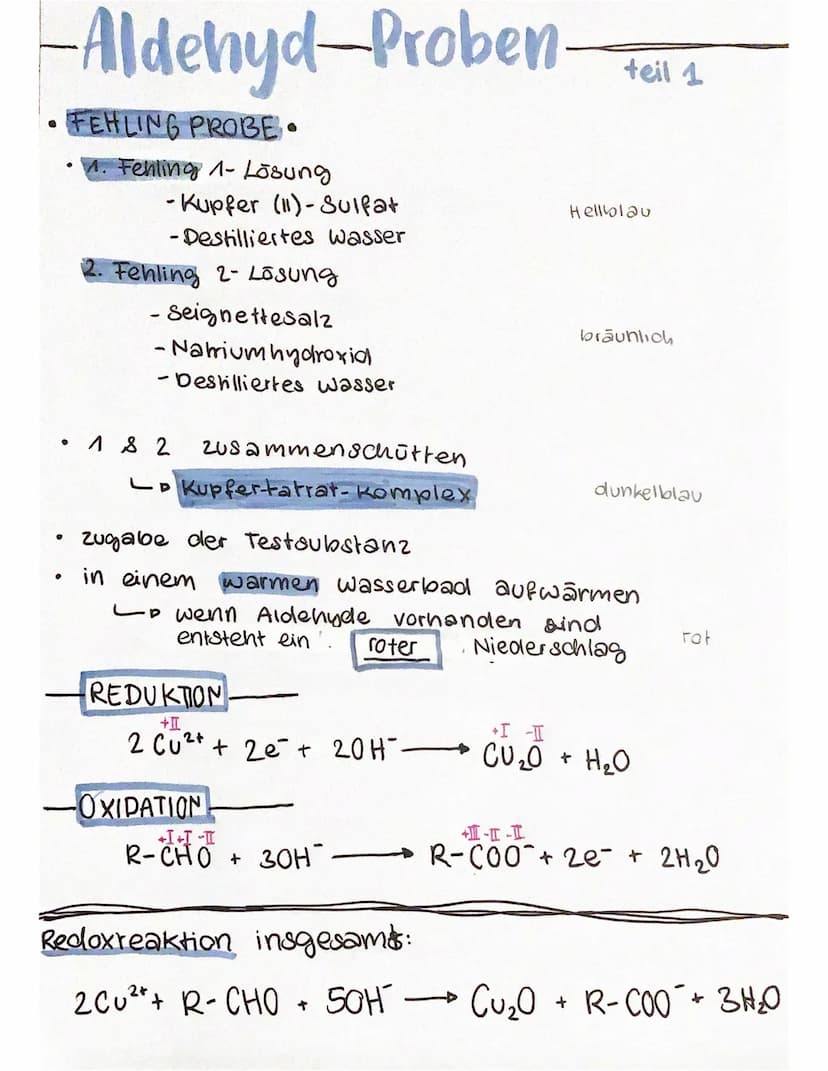 Aldehyd-Proben
teil 1
• FEHLING PROBE •
• 1. Fehling 1- Lösung
- Kupfer (II)- Sulfat
Hellblau
- Destilliertes Wasser
2. Fehling 2- Lösung
- Seignettesalz
bräunlich
- Natriumhydroxid
- Destilliertes Wasser
• 1 & 2 zusammenschütten
↳ Kupfer-tatrat-Komplex
dunkelblau
• Zugabe der Testsubstanz
• in einem warmen Wasserbad aufwärmen
↳ wenn Aldehyde vorhanden sind
entsteht ein roter Niederschlag
rot
REDUKTION
+II +I -II
2 Cu²⁺ + 2e⁻ + 2OH⁻ → Cu₂O + H₂O
OXIDATION
+I +I -II +III -II -II
R-CHO + 3OH⁻ → R-COO⁻ + 2e⁻ + 2H₂O
Redoxreaktion insgesamt:
2Cu²⁺ + R-CHO + 5OH⁻ → Cu₂O + R-COO⁻ + 3H₂O